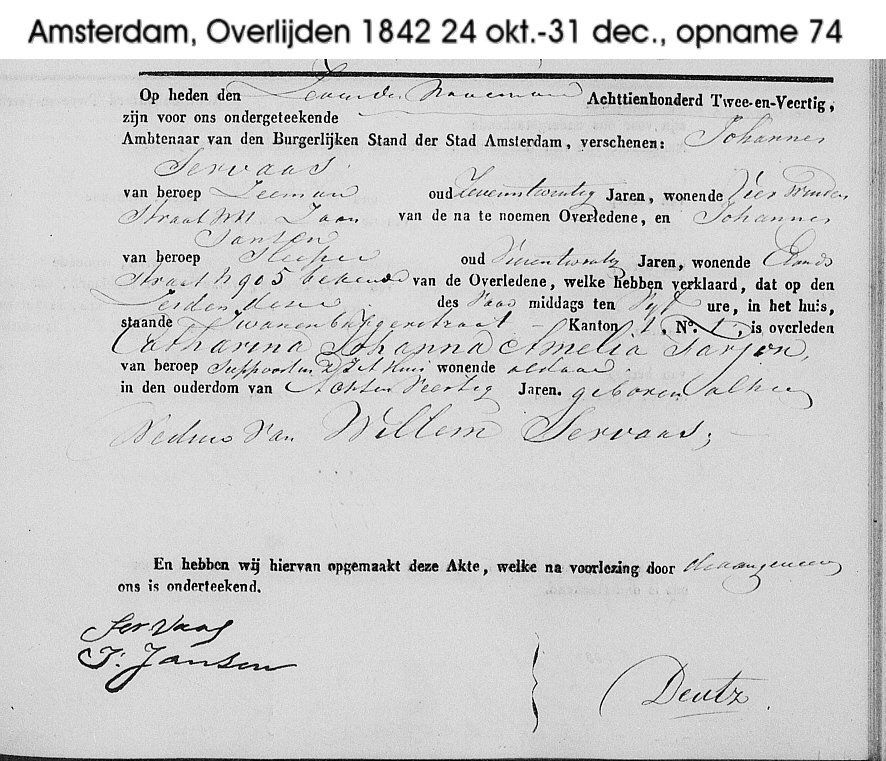 Amsterdam, Overlijden 1842 24 okt.-31 dec., opname 74
Op heden den November Achttienhonderd Twee-en-Veertig,
zijn voor ons ondergeteekende
Ambtenaar van den Burgerlijken Stand der Stad Amsterdam, verschenen: Johannes
Servaas
van beroep Zeeman oud Zevenentwintig Jaren, wonende
Straat Zoon van de na te noemen Overledene, en Johannes
Jansen
van beroep Jaren, wonende Elands
Straat N 905 bekende van de Overledene, welke hebben verklaard, dat op den
Derden dezer des Voor middags ten Vyf ure, in het huis,
staande Zwanenburgerstraat Kanton 1, No. 1, is overleden
Catharina Johanna Amelia Sarjon,
van beroep wonende aldaar
in den ouderdom van Achten Veertig Jaren. geboren alhier
Weduwe van Willem Servaas;
En hebben wij hiervan opgemaakt deze Akte, welke na voorlezing door
ons is onderteekend.
Servaas
J: Jansen
Deutz.